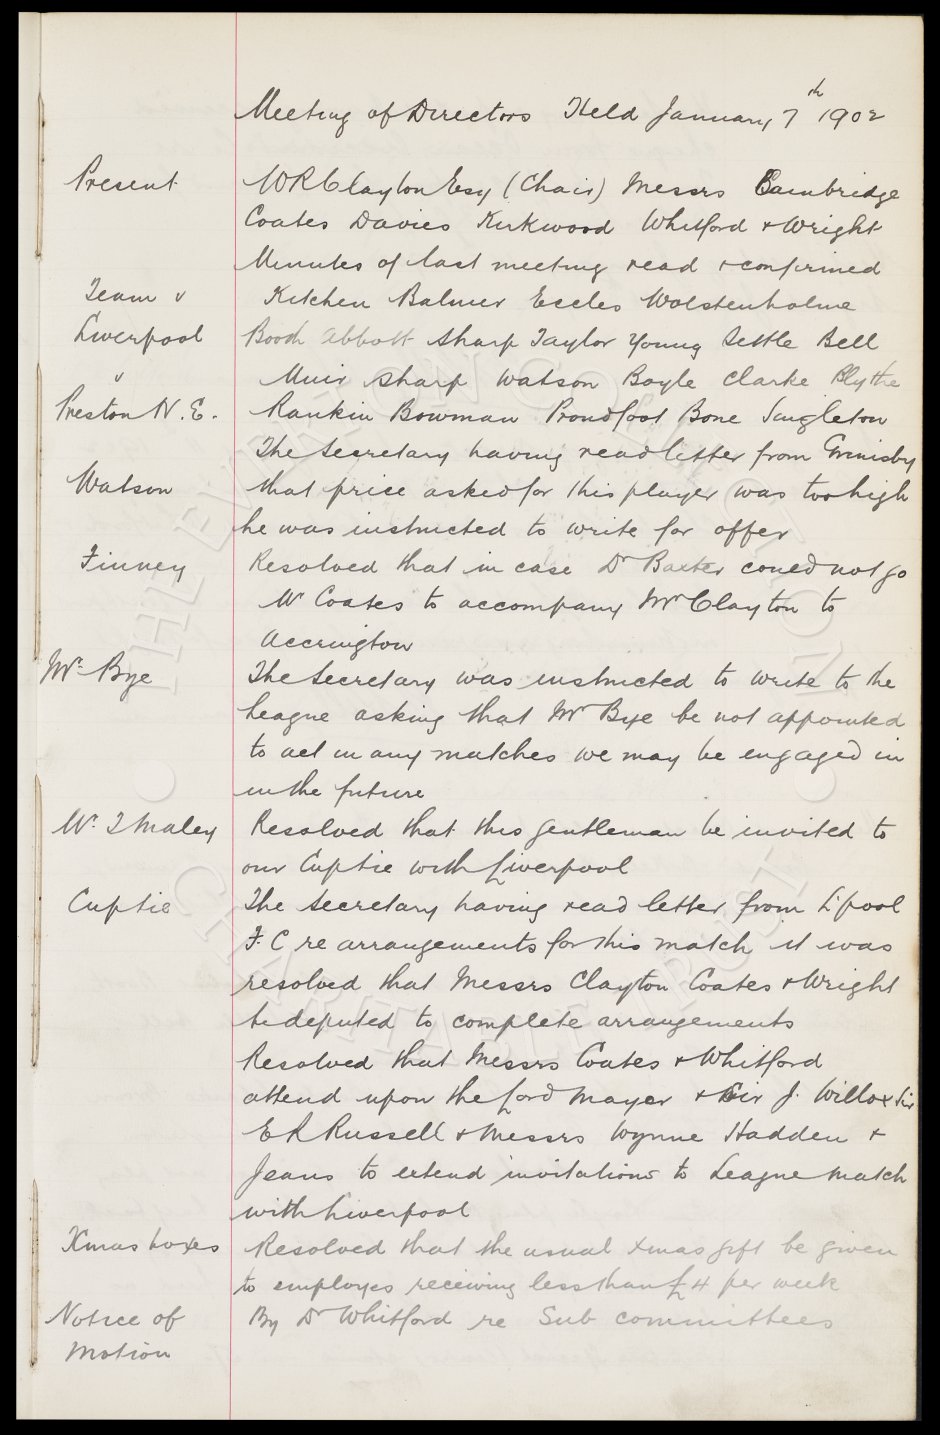 Meeting of Directors Held January 7th 1902
Present W R Clayton Esq (Chair) Messrs Bainbridge
Coates Davies Kirkwood Whitford & Wright
Minutes of last meeting read & confirmed
Team v Kitchen Balmer Eccles Wolstenholme
Liverpool Booth Abbott Sharp Taylor Young Settle Bell
v Muir Sharp Watson Boyle Clarke Blythe
Preston N.E. Rankin Bowman Proudfoot Bone Singleton
The Secretary having read letter from Grimsby
Watson that price asked for this player was too high
he was instructed to write for offer
Finney Resolved that in case Dr Baxter could not go
Mr Coates to accompany Mr Clayton to
Accrington
Mr. Bye The Secretary was instructed to write to the
League asking that Mr Bye be not appointed
to act in any matches we may be engaged in
in the future
Mr. T Maley Resolved that this gentleman be invited to
our Cuptie with Liverpool
Cuptie The Secretary having read letter from L'pool
F.C re arrangements for this match it was
resolved that Messrs Clayton Coates & Wright
be deputed to complete arrangements
Resolved that Messrs Coates & Whitford
attend upon the Lord Mayor & Sir J. Willox Sir
E R Russell & Messrs Wynne Hadden &
Jeans to extend invitations to League match
with Liverpool
Xmas boxes Resolved that the usual Xmas gift be given
to employes receiving less than £4 per week
Notice of By Dr Whitford re Sub committees
Motion
THE EVERTON COLLECTION
CHARITABLE TRUST